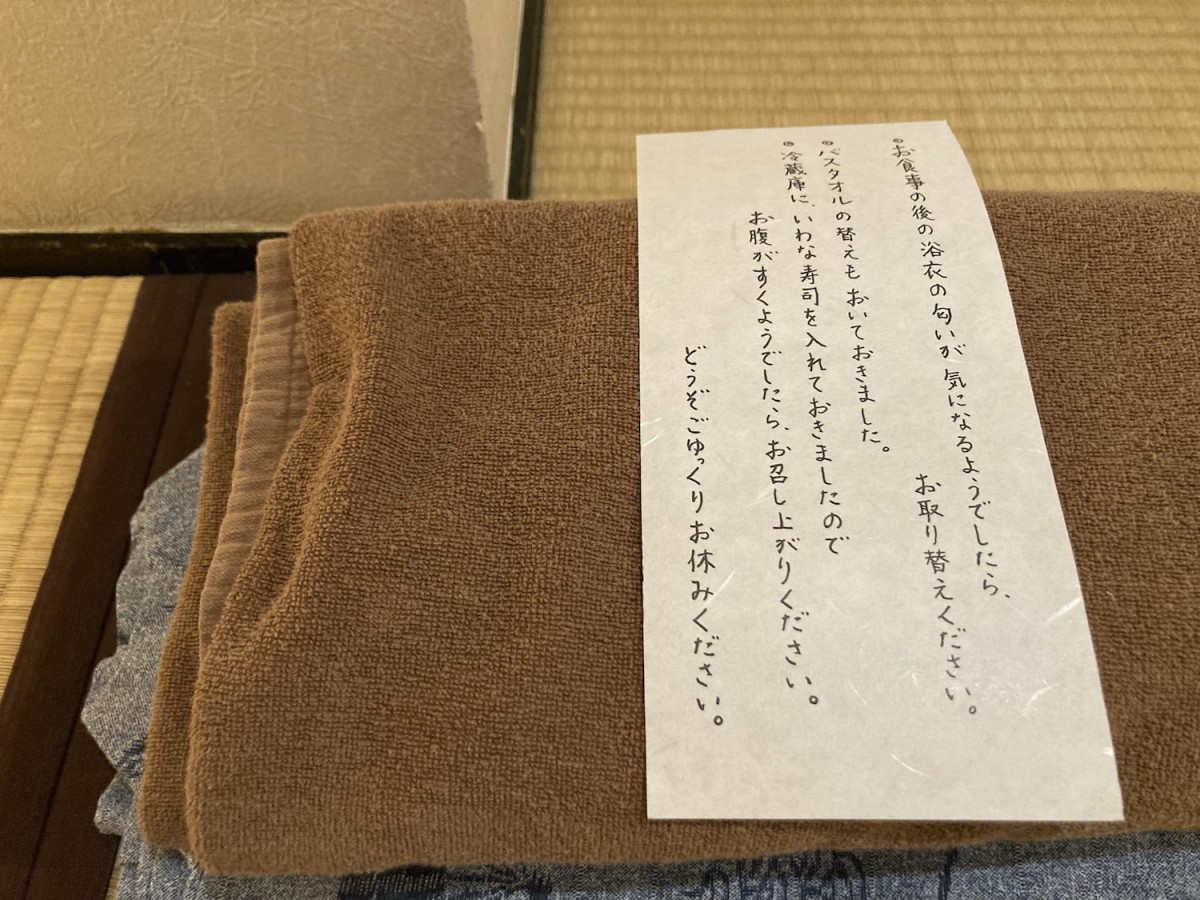 ◎お食事の後の浴衣の匂いが気になるようでしたら、
お取り替えください。
◎バスタオルの替えもおいておきました。
◎冷蔵庫に、いわな寿司を入れておきましたので
お腹がすくようでしたら、お召し上がりください。
どうぞごゆっくりお休みください。